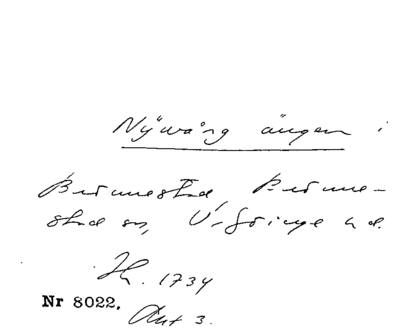 Nÿwång ängen i
Brönnestad, Brönne-
stad sn, V. Göinge hd.
Jb. 1734
Nr 8022.
Akt 3.